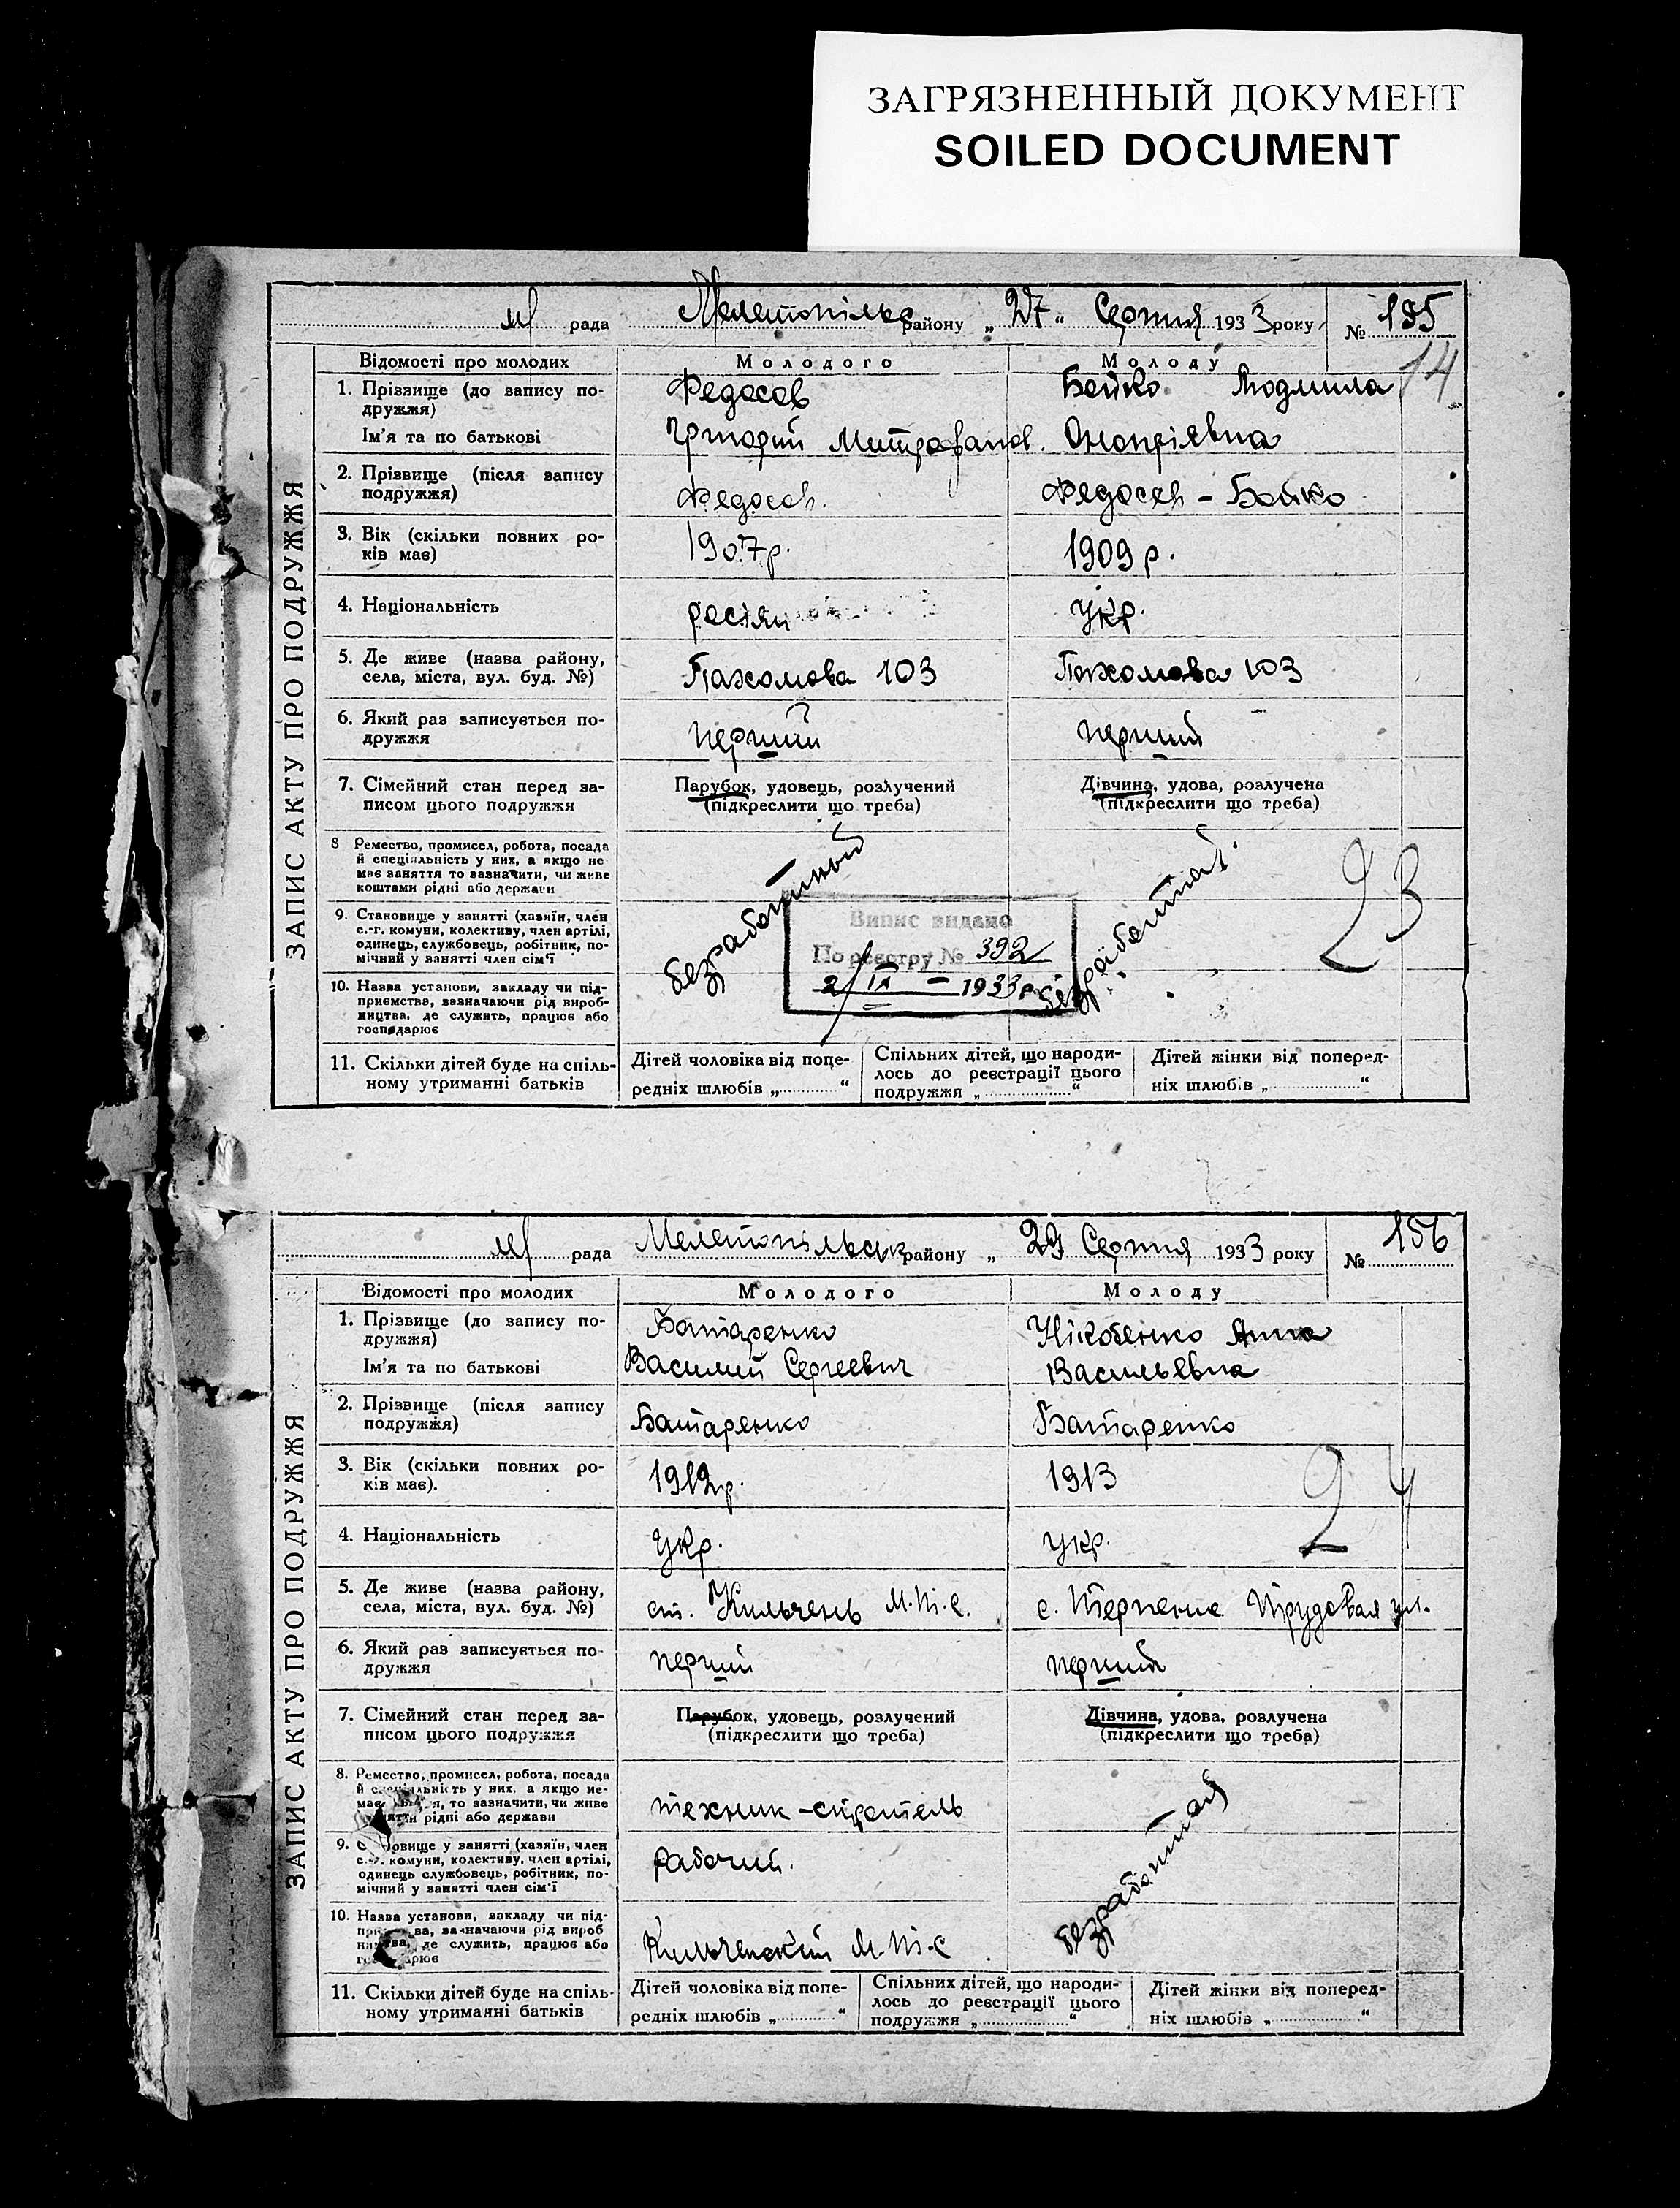 ЗАГРЯЗНЕННЫЙ ДОКУМЕНТ
SOILED DOCUMENT
м рада Мелетопільс району „ 27 “ Серпня 1933 року № 155
14
ЗАПИС АКТУ ПРО ПОДРУЖЖЯ
Відомості про молодих Молодого Молоду
1. Прізвище (до запису по- Федосов Бойко Людмила
дружжя)
Ім'я та по батькові Григорий Митрофанов. Оноприевна
2. Прізвище (після запису Федосов. Федосов - Бойко
подружжя)
3. Вік (скільки повних ро- 1907р. 1909р.
ків має)
4. Національність росіян укр.
5. Де живе (назва району, Пахомова 103 Пахомова 103
села, міста, вул. буд. №)
6. Який раз записується по- перший перший
дружжя
7. Сімейний стан перед за- Парубок, удовець, розлучений Дівчина, удова, розлучена
писом цього подружжя (підкреслити що треба) (підкреслити що треба)
8 Ремество, промисел, робота, посада
й спеціяльність у них, а якщо не
має заняття то зазначити, чи живе
коштами рідні або держави
безработный безработная
23
9. Становище у занятті (хазяїн, член
с.-г. комуни, колективу, член артілі,
одинець, службовець, робітник, по-
мічний у занятті член сім'ї
Випис видано
По реєстру № 392
2/IX - 1933р
10. Назва установи, закладу чи під-
приємства, зазначаючи рід вироб-
ництва, де служить, працює або
господарює
11. Скільки дітей буде на спіль- Дітей чоловіка від попе- Спільних дітей, що народи- Дітей жінки від поперед-
ному утриманні батьків редніх шлюбів „ “ лось до реєстрації цього ніх шлюбів „ “
подружжя „ “
м рада Мелетопільськ району „ 29 Серпня 1933 року № 156
ЗАПИС АКТУ ПРО ПОДРУЖЖЯ
Відомості про молодих Молодого Молоду
1. Прізвище (до запису по- Батаренко Анна
дружжя)
Ім'я та по батькові Василий Сергеевич Васильевна
2. Прізвище (після запису Батаренко Батаренко
подружжя)
3. Вік (скільки повних ро- 1912р. 1913
ків має).
24
4. Національність укр. укр.
5. Де живе (назва району, ст. Кильчень М.Т.С. с. Терпение Трудовая ул.
села, міста, вул. буд. №)
6. Який раз записується по- перший перший
дружжя
7. Сімейний стан перед за- Парубок, удовець, розлучений Дівчина, удова, розлучена
писом цього подружжя (підкреслити що треба) (підкреслити що треба)
8. Ремество, промисел, робота, посада
й спеціяльність у них, а якщо не-
має то зазначити, чи живе
рідні або держави
техник-строитель
безработная
9. Становище у занятті (хазяїн, член
с.-г. комуни, колективу, член артілі,
одинець службовець, робітник, по-
мічний у занятті член сім'ї
рабочий.
10. Назва установи, закладу чи під-
ва, зазначаючи рід вироб
де служить, працює або
Кильченский М.Т.С
11. Скільки дітей буде на спіль- Дітей чоловіка від попе- Спільних дітей, що народи- Дітей жінки від поперед-
ному утриманні батьків редніх шлюбів „ “ лось до реєстрації цього ніх шлюбів „ “
подружжя „ “